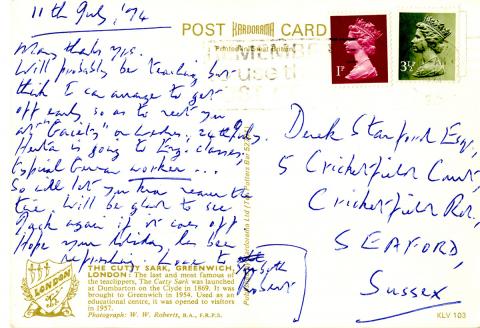 11th July, '74
POST KARDORAMA CARD
Printed in Great Britain
REMEMBER
use th
1P
3½P
Many thanks yrs.
Will probably be teaching but
think I can arrange to get
off early so as to meet you
at "Gaiety" on Wednes, 24th July.
is going to Eng. classes,
typical German worker...
So will let you know nearer the
time. Will be glad to see
again if it comes off
Hope your holiday has been
refreshing. Love to
Robert
Derek Stanford Esq,
5 Cricketfield Court,
Cricketfield Rd.,
SEAFORD,
Sussex
Published by Kardorama Ltd (Tel: Potters Bar 52
LONDON
THE CUTTY SARK, GREENWICH,
LONDON: The last and most famous of
the teaclippers, The Cutty Sark was launched
at Dumbarton on the Clyde in 1869. It was
brought to Greenwich in 1954. Used as an
educational centre, it was opened to visitors
in 1957.
Photograph: W. W. Roberts, B.A., F.R.P.S.
KLV 103